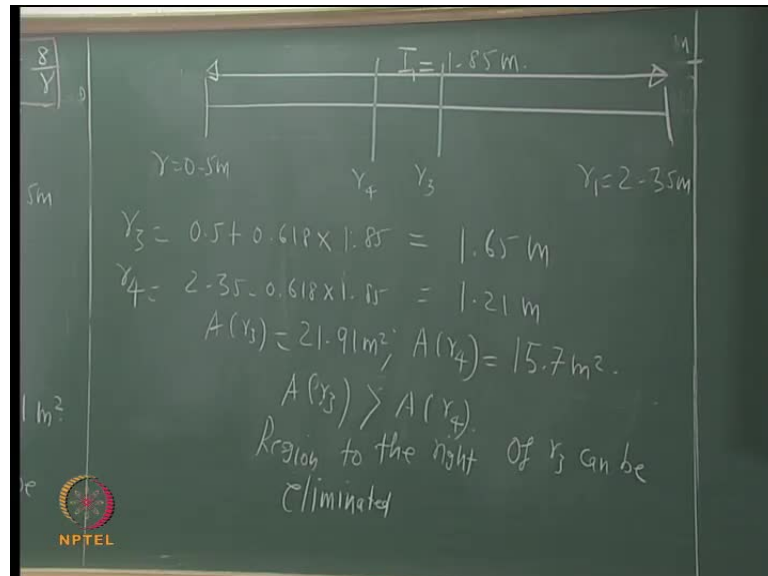 8/γ
I₁ = 1.85m.
5m
γ=0.5m γ₄ γ₃ γ₁=2.35m
γ₃= 0.5+0.618×1.85 = 1.65 m
γ₄= 2.35-0.618×1.85 = 1.21 m
A(γ₃)=21.91m²; A(γ₄)= 15.7m².
A(γ₃) > A(γ₄).
1 m²
Region to the right of γ₃ can be
eliminated
NPTEL